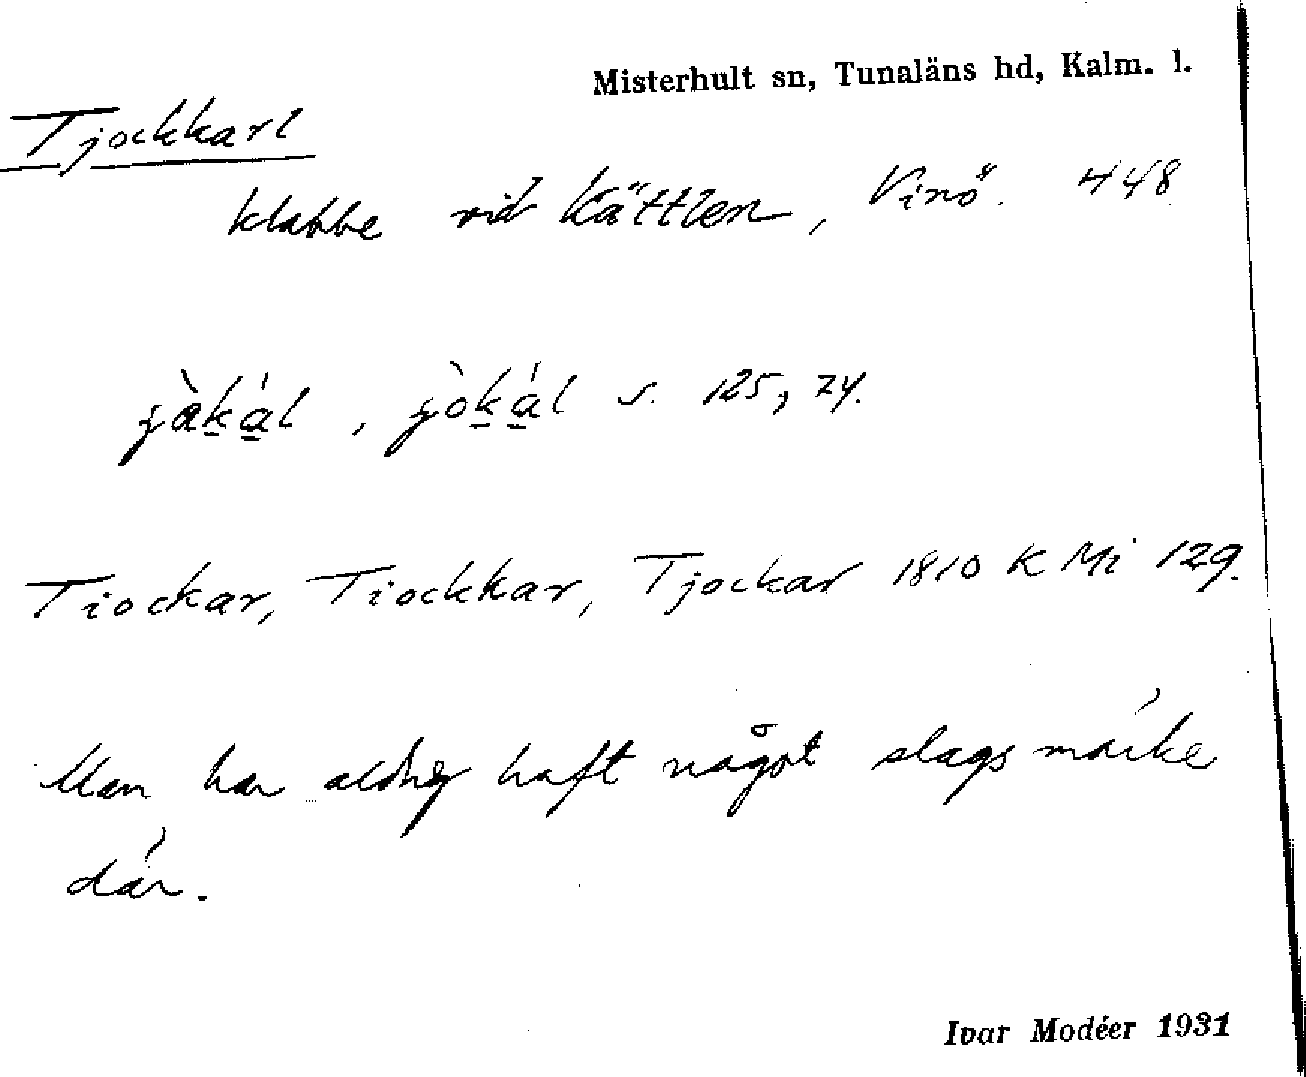 Misterhult sn, Tunaläns hd, Kalm. l.
Tjockkarl
klabbe vid Kättlen, Vinö. 448
s. 125, 24.
Tiockar, Tiockkar, Tjockar 1810 K Mi 129.
Man har aldrig haft något slags märke
där.
Ivar Modéer 1931